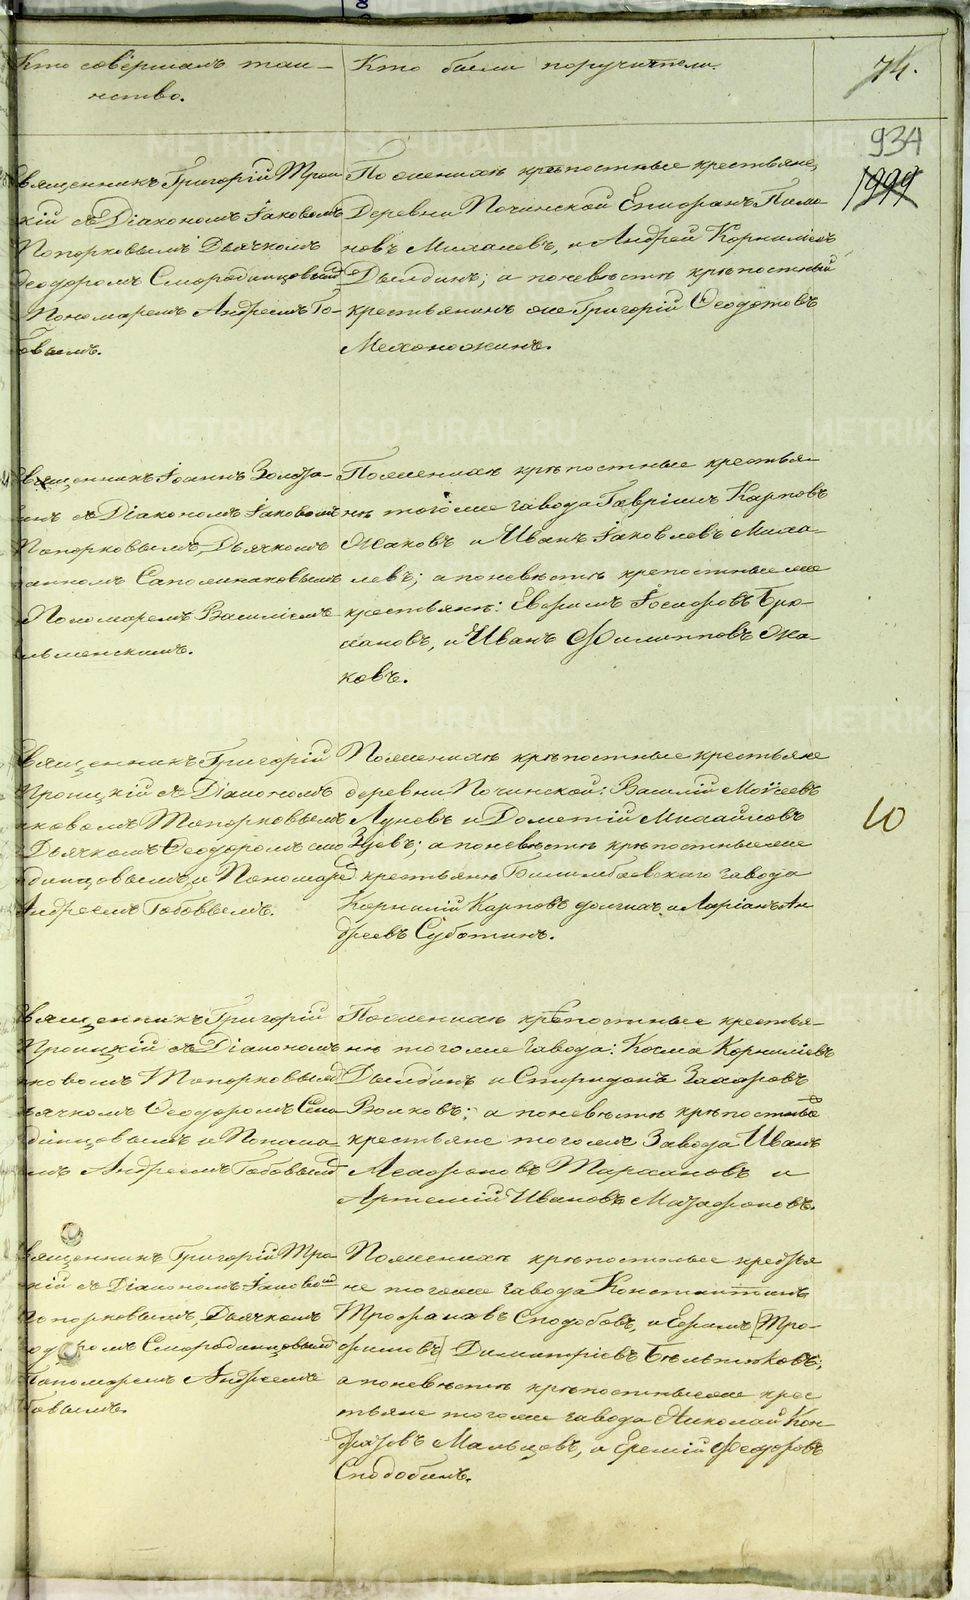 Кто совершалъ таин-
ство.
Кто были поручители.
74.
934
1999
вященникъ Григорій Трои
кій съ Діакономъ Іаковомъ
Топорковымъ Дьячкомъ
Ѳеодоромъ Смородинцовымъ
Пономаремъ Андреемъ Го-
бовымъ.
По женихѣ крѣпостные крестьяне,
Деревни Починской Епифанъ Пиме
новъ Михалевъ, и Андрей Корниліевъ
Дылдинъ; а по невѣстѣ крѣпостный
крестьянинъ же Григорій Ѳеодотовъ
Мехоножинъ.
вященникъ Іоаннъ
съ Діакономъ Іаковомъ
Топорковымъ, Дьячкомъ
Сапожниковымъ
Пономаремъ Василіемъ
По женихѣ крѣпостные крестья-
нѣ того же завода Гавріилъ Карповъ
Жаковъ и Иванъ Іаковлевъ Миха-
левъ; а по невѣстѣ крепостные же
крестьянѣ: Евфимъ Іосифовъ Брю-
хановъ, и Иванъ Филипповъ Жа-
ковъ.
вященникъ Григорій
Троицкій съ Діакономъ
аковомъ Топорковымъ
Дьячкомъ Ѳеодоромъ смо
динцовымъ, и Пономаре
Андреемъ Гобовымъ.
По женихѣ крѣпостные крестьяне
деревни Починской: Василій Моѵсеевъ
Луневъ и Дометій Михайловъ
Зуевъ; а по невѣстѣ крѣпостные же
крестьянѣ Билимбаевскаго завода
Корнилій Карповъ долгихъ, и Маріанъ Ан
дреевъ Суботинъ.
10
вященникъ Григорій
Троицкій съ Діакономъ
аковомъ Топорковымъ
ьячкомъ Ѳеодоромъ Смо
динцовымъ и Понома
емъ Андреемъ Гобовымъ
По женихѣ крѣпостные крестья-
нѣ того же завода: Косма Корниліевъ
Дылдинъ и Спиридонъ Захаровъ
Волковъ; а по невѣстѣ крѣпостные
крестьяне того же Завода Иванъ
Агафоновъ Тархановъ и
Артемій Ивановъ Магафоновъ.
вященникъ Григорій Тро
кій съ Діакономъ Іаковом
Топорковымъ, Дьячкомъ
одоромъ Смородинцовымъ
Пономаремъ Андреемъ
бовымъ.
По женихѣ крѣпостные крестья
не того же завода Константинъ
Трофимовъ Сподобовъ, и Ефимъ [Тро-
фимовъ] Димитріевъ Бѣльтюковъ;
а по невѣстѣ крѣпостные же крес
тьяне того же завода Николай Кон
дратовъ Мальцовъ, и Еремій Феодоровъ
Сподобинъ.
METRIKI.GASO-URAL.RU